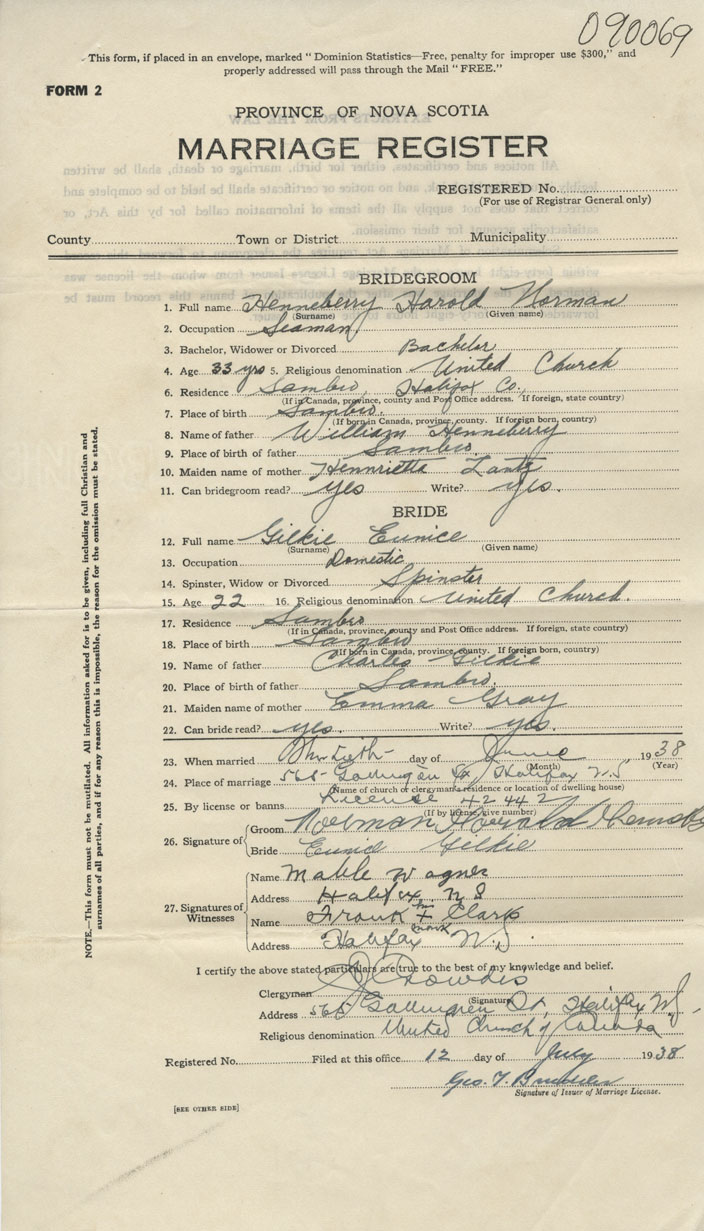 090069
This form, if placed in an envelope, marked "Dominion Statistics—Free, penalty for improper use $300," and
properly addressed will pass through the Mail "FREE."
FORM 2
PROVINCE OF NOVA SCOTIA
MARRIAGE REGISTER
REGISTERED No.
(For use of Registrar General only)
County Town or District Municipality
BRIDEGROOM
1. Full name Henneberry Harold Norman
(Surname) (Given name)
2. Occupation Seaman
3. Bachelor, Widower or Divorced Bachelor
4. Age 33 yrs 5. Religious denomination United Church
6. Residence Sambro, Halifax Co.
(If in Canada, province, county and Post Office address. If foreign, state country)
7. Place of birth Sambro.
(If born in Canada, province, county. If foreign born, country)
8. Name of father William Henneberry
9. Place of birth of father Sambro.
10. Maiden name of mother Hennrietta Lantz
11. Can bridegroom read? yes Write? yes.
BRIDE
12. Full name Gilkie Eunice
(Surname) (Given name)
13. Occupation Domestic
14. Spinster, Widow or Divorced Spinster
15. Age 22 16. Religious denomination United Church.
17. Residence Sambro
(If in Canada, province, county and Post Office address. If foreign, state country)
18. Place of birth Sambro
(If born in Canada, province, county. If foreign born, country)
19. Name of father Charles Gilkie
20. Place of birth of father Sambro.
21. Maiden name of mother Emma Gray
22. Can bride read? yes. Write? yes.
23. When married day of June, 1938
(Month) (Year)
24. Place of marriage 565 St Halifax N.S
(Name of church or clergyman's residence or location of dwelling house)
25. By license or banns License 42442
(If by license, give number)
26. Signature of Groom Norman Harold
Bride Eunice Gilkie
27. Signatures of Witnesses Name Mable Wagner
Address Halifax N S
Name Frank his + mark Clark
Address Halifax N.S.
I certify the above stated particulars are true to the best of my knowledge and belief.
Clergyman
(Signature)
Address 565 St, Halifax N.S.
Religious denomination United Church of Canada
Registered No. Filed at this office 12 day of July 1938
Geo. T.
Signature of Issuer of Marriage License.
[SEE OTHER SIDE]
NOTE.—This form must not be mutilated. All information asked for is to be given, including full Christian and
surnames of all parties, and if for any reason this is impossible, the reason for the omission must be stated.